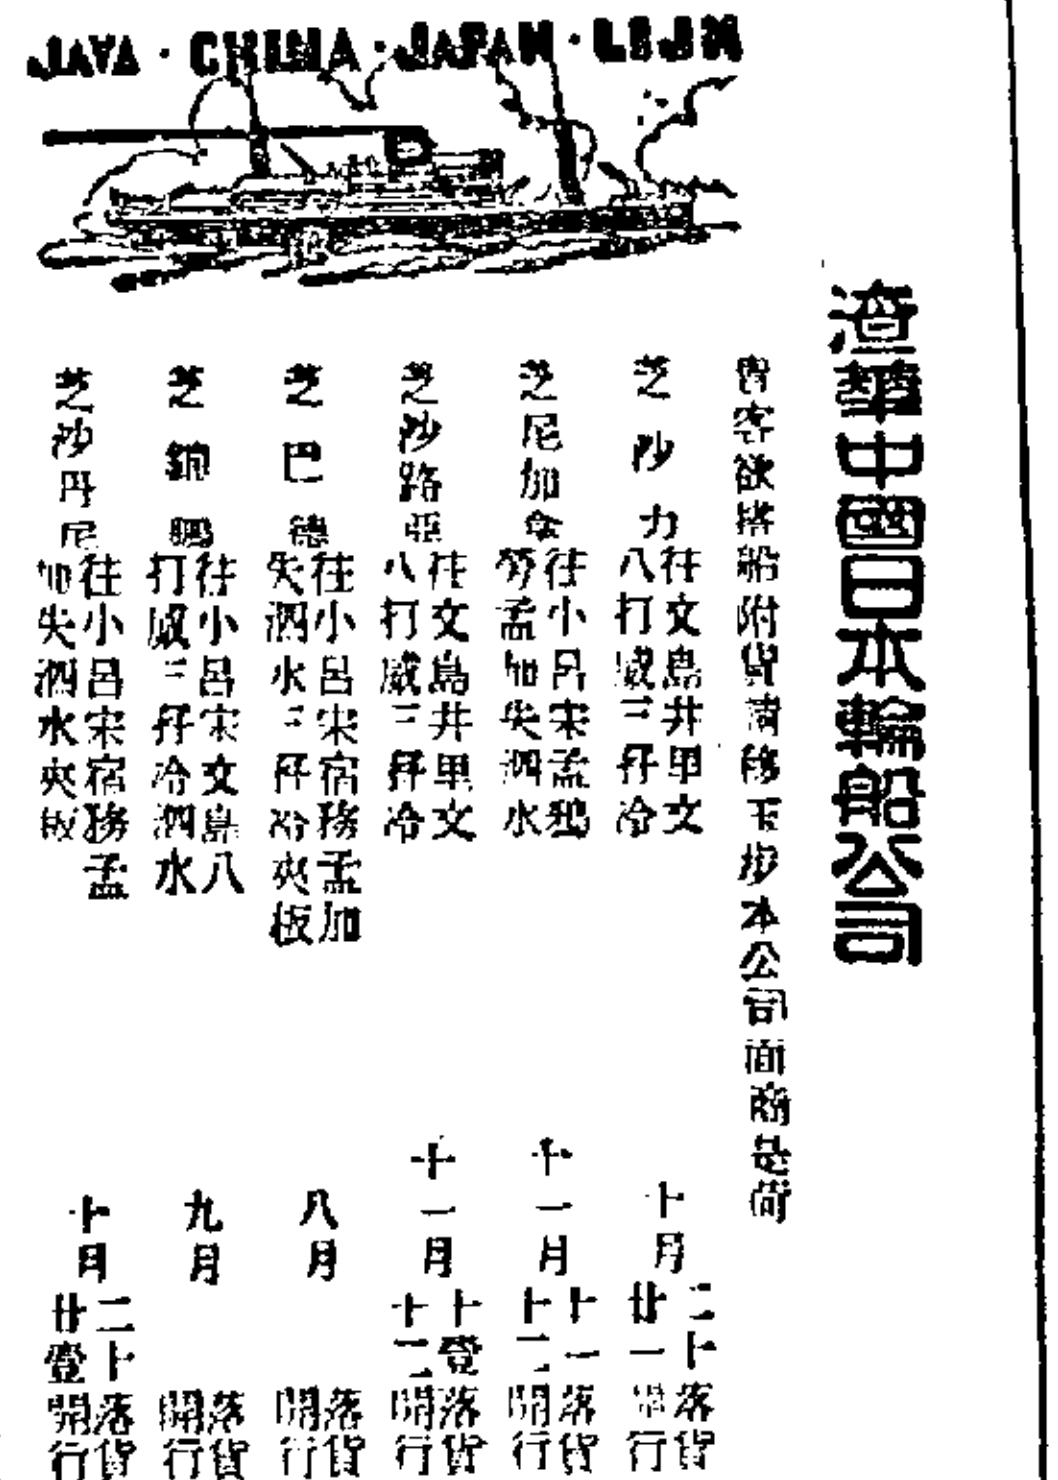 JAVA · CHINA · JAPAN · LIJN
渣華中國日本輪船公司
貴客欲搭船附貨請移玉步本公司面商是荷
芝沙力
往文島井里文
八打威三孖冷
十月
二十落貨
廿一開行
芝尼加拿
往小呂宋孟鵝
勞孟加失泗水
十一月
十一落貨
十二開行
芝沙路亞
往文島井里文
八打威三孖冷
十一月
十壹落貨
十二開行
芝巴德
往小呂宋宿務孟加
失泗水三孖冷夾板
八月
落貨
開行
芝鵬
往小呂宋文島八
打威三孖冷泗水
九月
落貨
開行
芝沙丹尼
往小呂宋宿務孟
加失泗水夾板
十月
二十落貨
廿壹開行